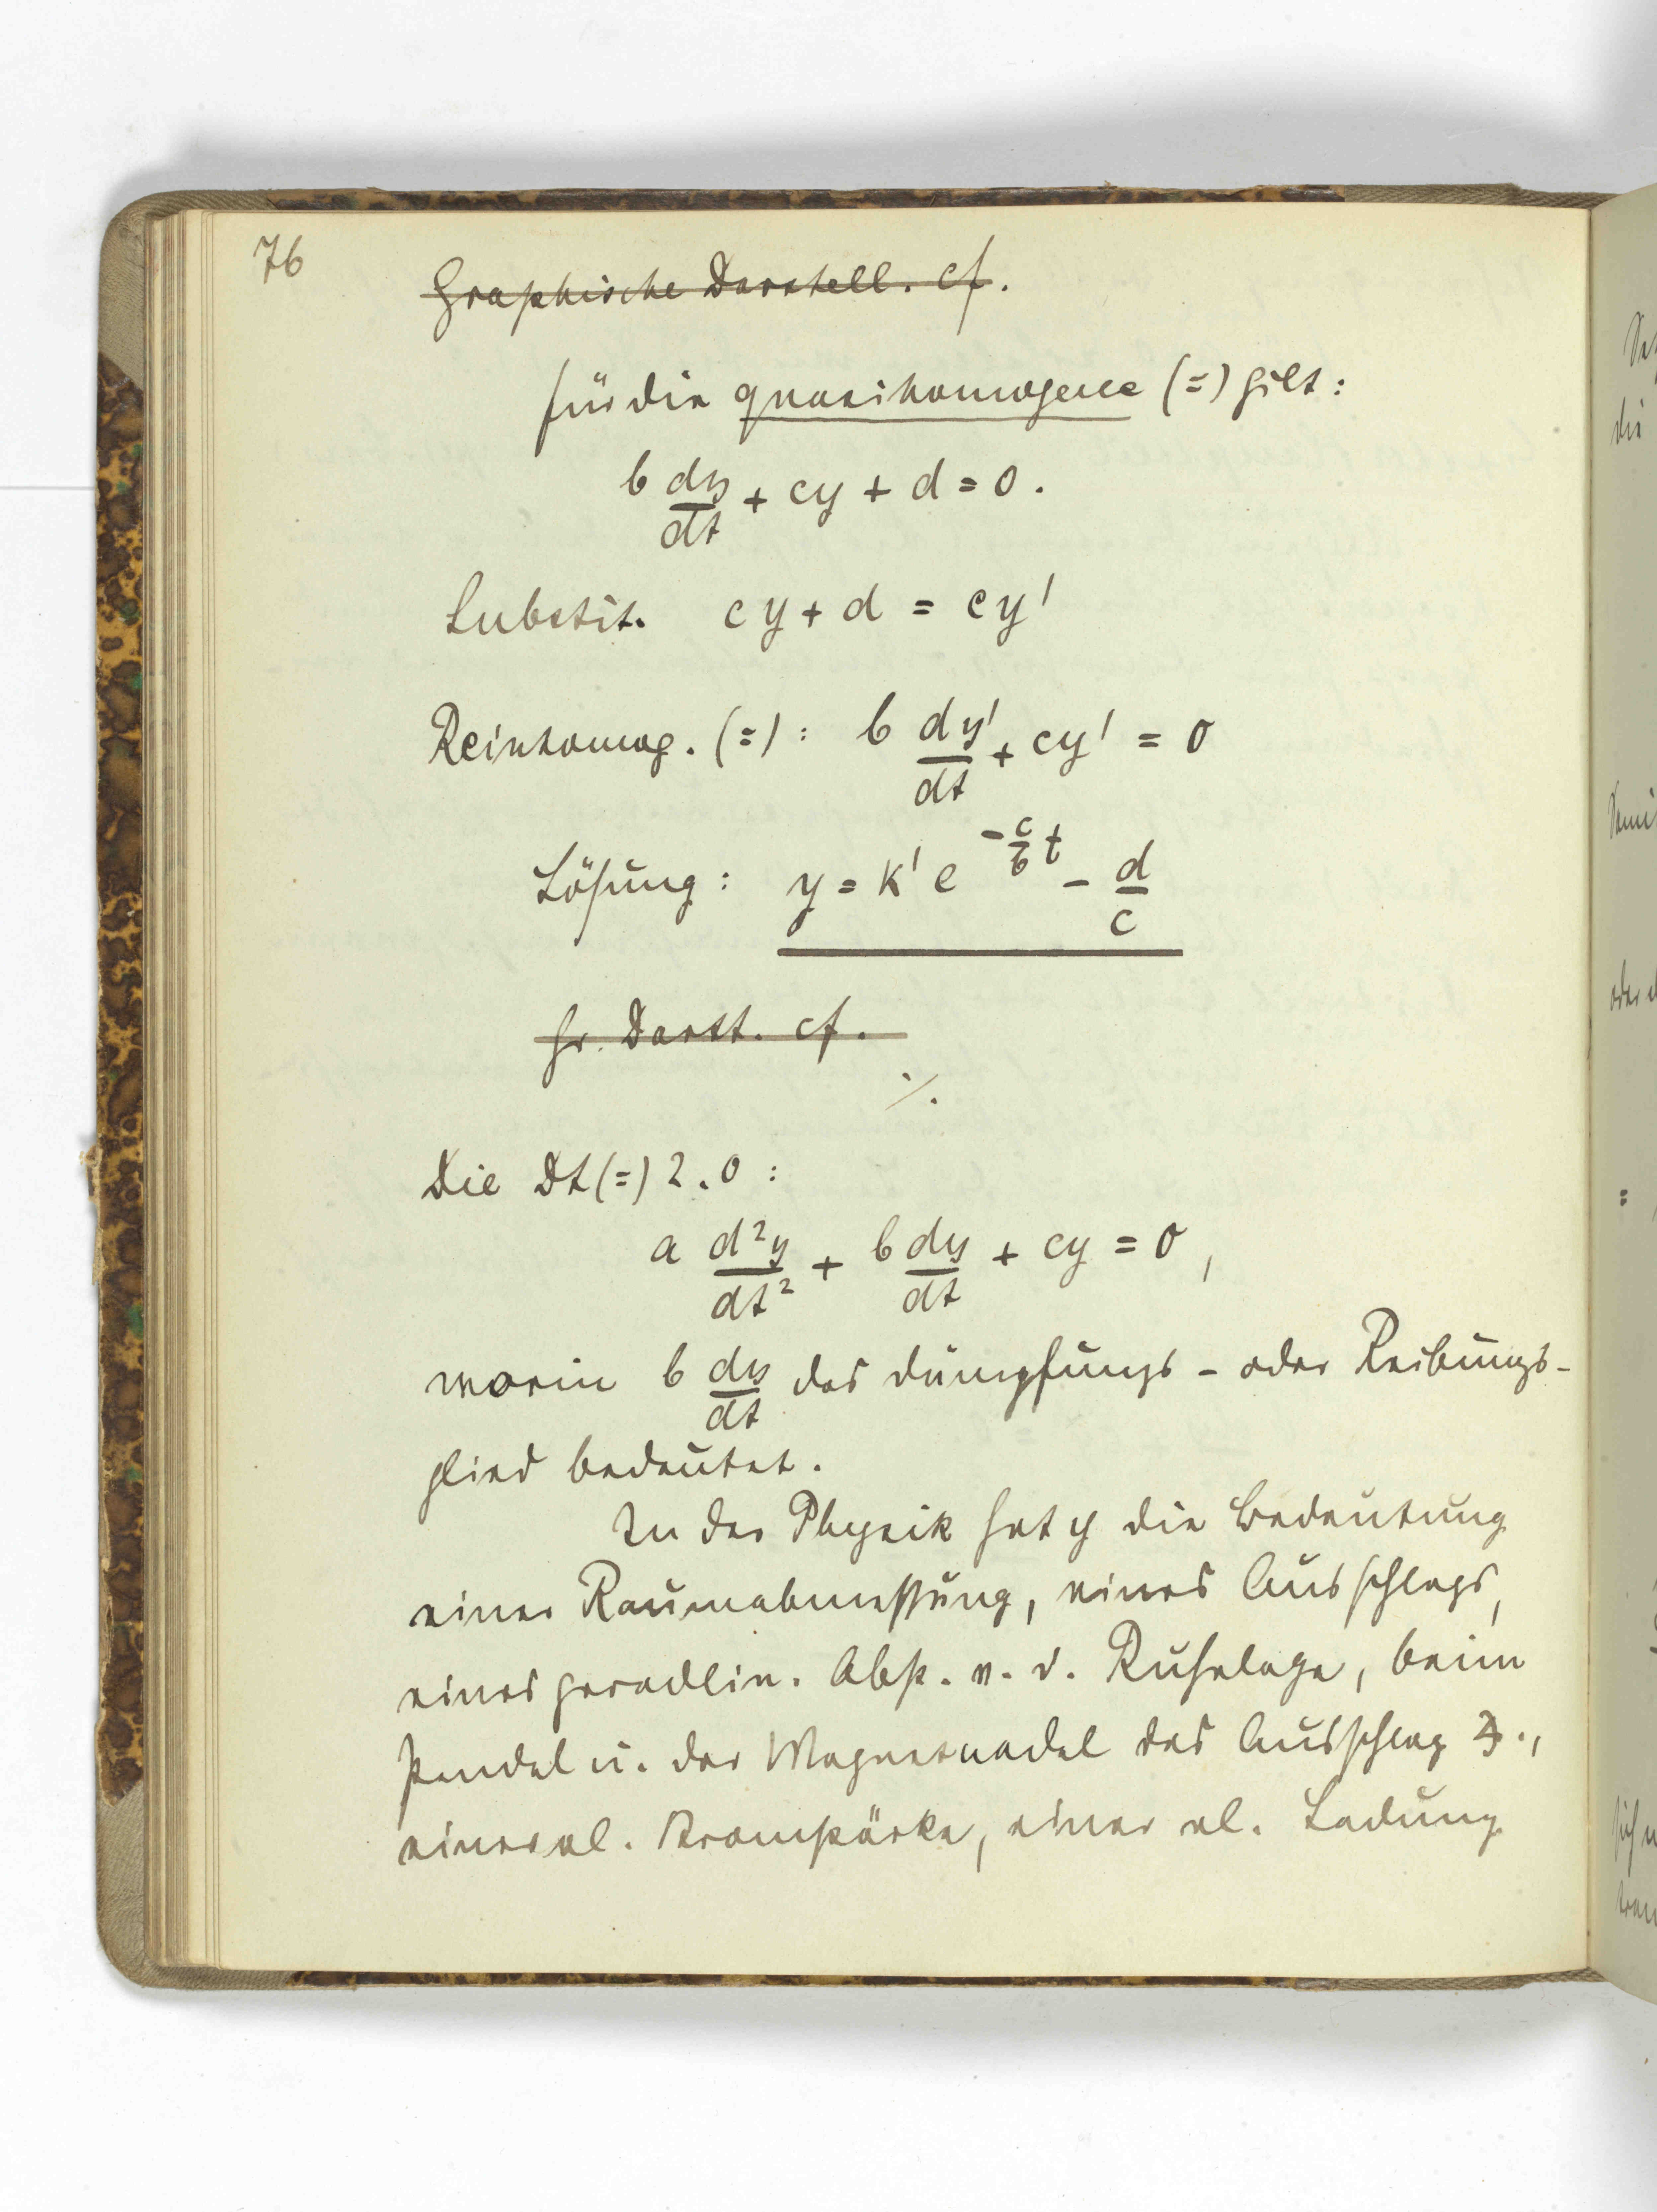 76
Graphische Darstell. cf.
für die quasihomogene (=) gilt:
b dy/dt + cy + d = 0.
Substit. cy + d = cy'
Reinhomog. (=): b dy'/dt + cy' = 0
Lösung: y = k' e^(-c/b t) - d/c
Gr. Darst. cf.
./.
Die Dt(=) 2.O:
a d²y/dt² + b dy/dt + cy = 0,
worin b dy/dt das Dämpfungs- oder Reibungs-
glied bedeutet.
In der Physik hat y die Bedeutung
einer Raumabmessung, eines Ausschlags,
eines geradlin. Abst. v. d. Ruhelage, beim
Pendel u. der Magnetnadel des Ausschlag
einer el. Stromstärke, einer el. Ladung